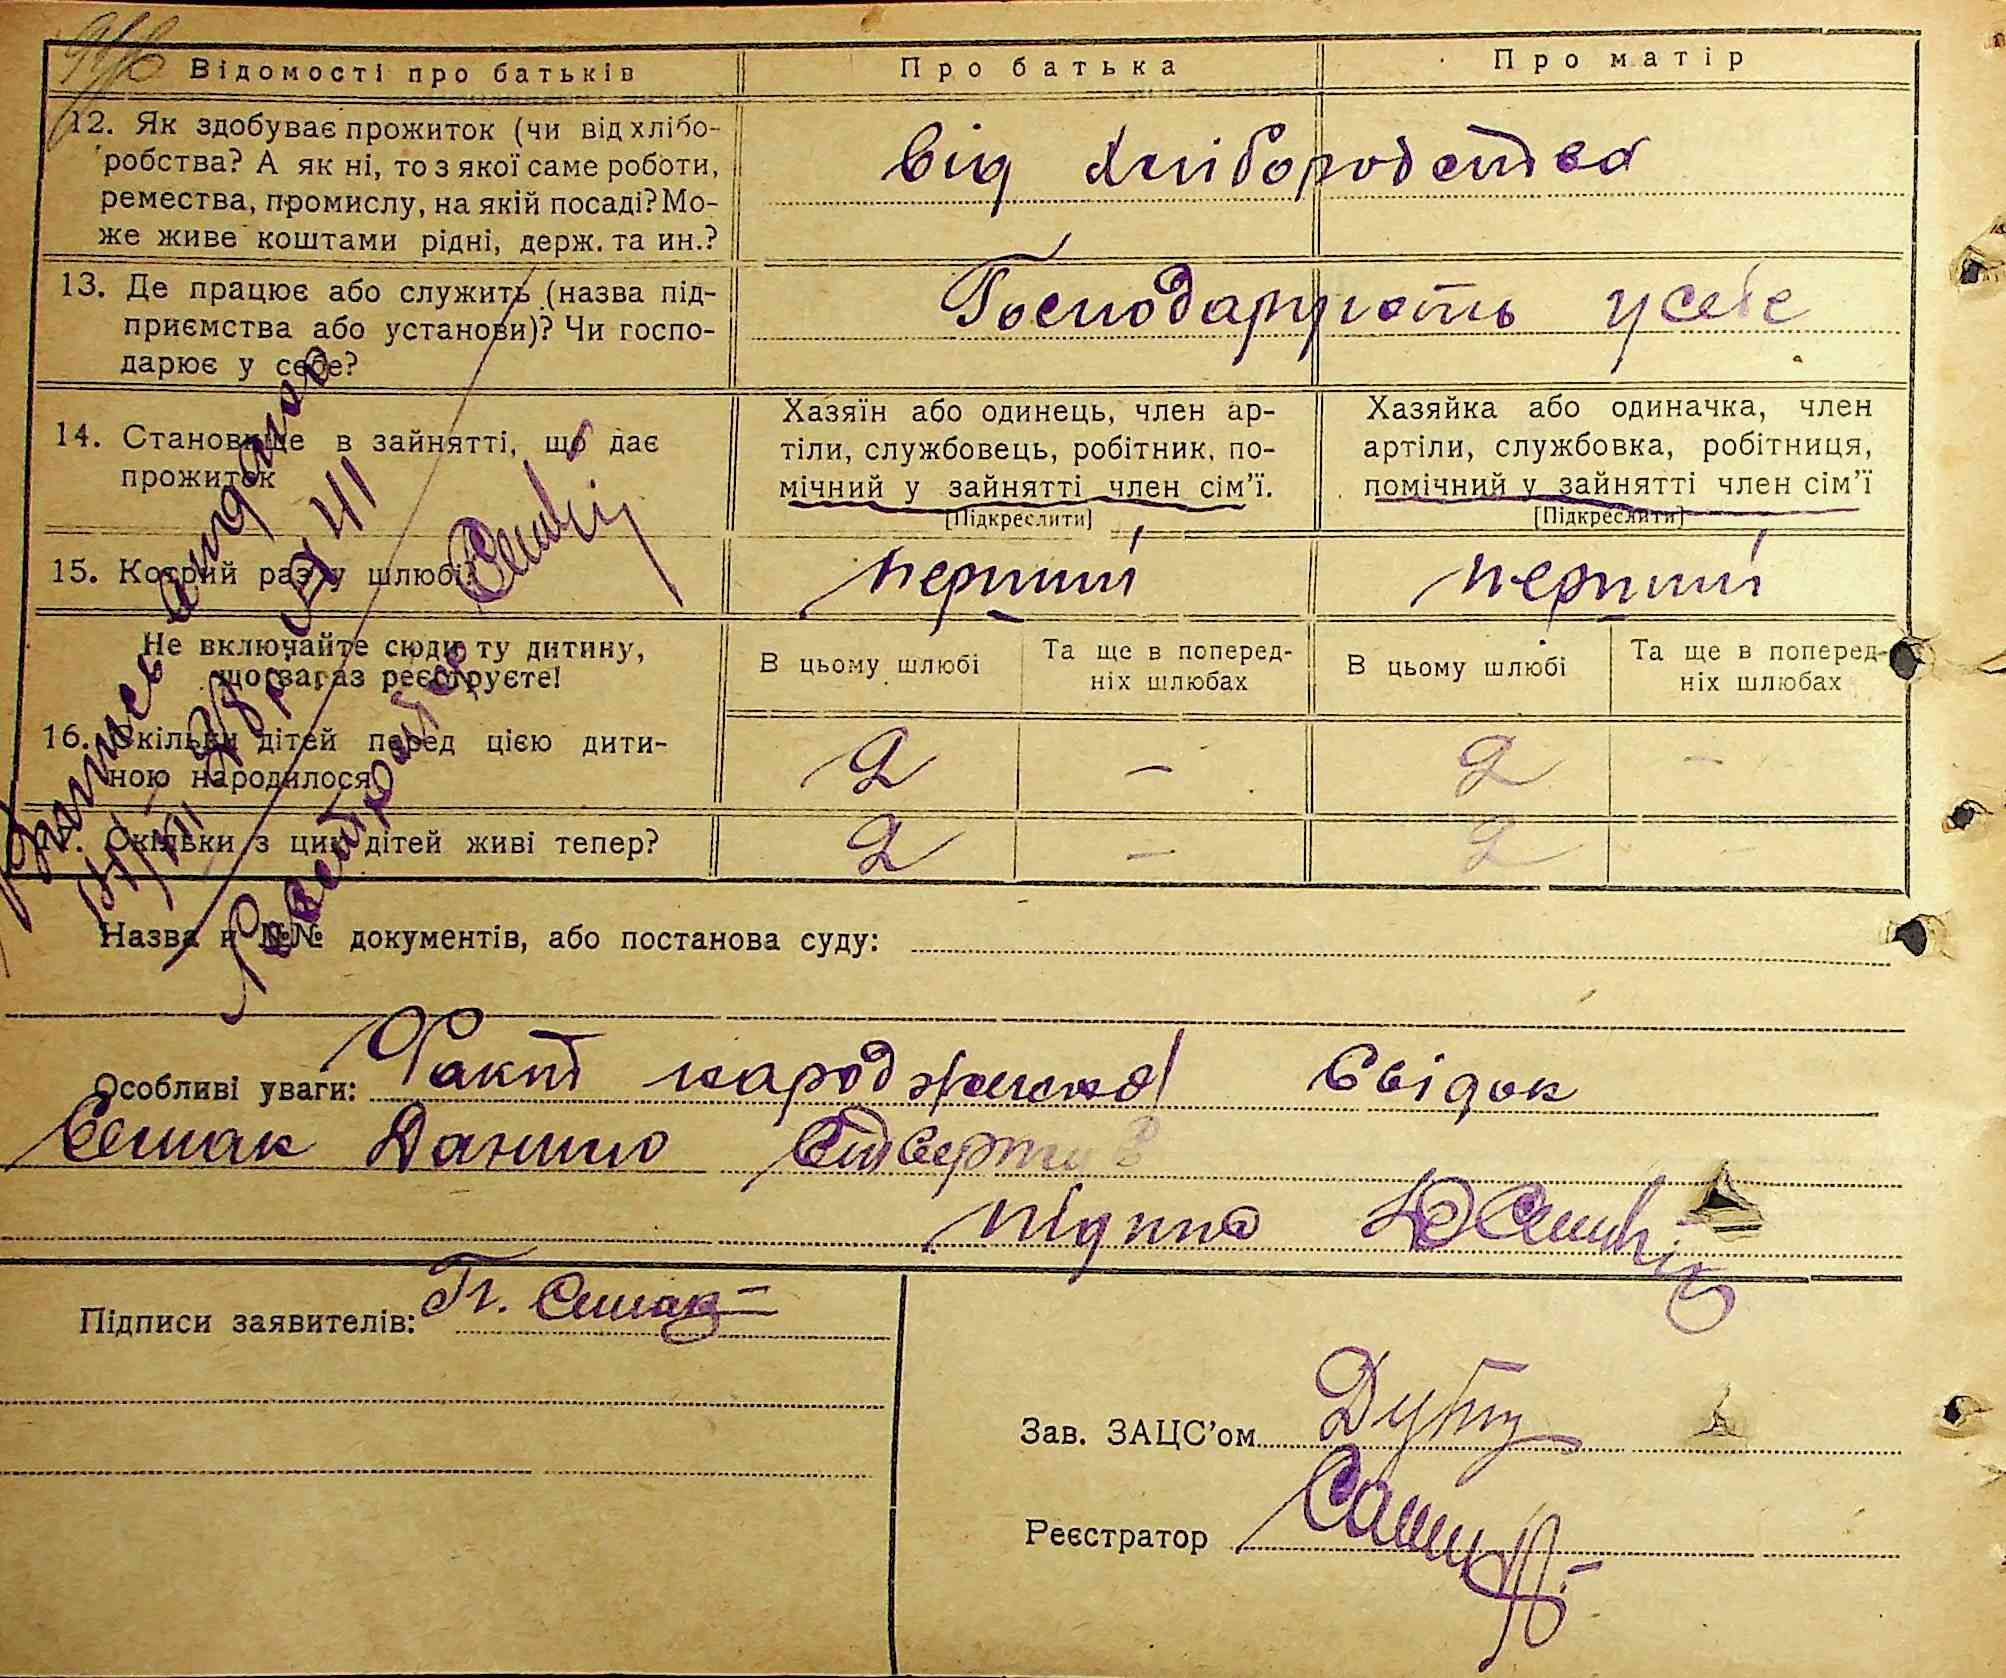 Відомості про батьків
Про батька
Про матір
12. Як здобуває прожиток (чи від хлібо-
робства? А як ні, то з якої саме роботи,
ремества, промислу, на якій посаді? Мо-
же живе коштами рідні, держ. та ин.?
від хліборобства
13. Де працює або служить (назва під-
приємства або установи)? Чи госпо-
дарює у себе?
Господарують у себе
14. Становище в зайнятті, що дає
прожиток
Хазяїн або одинець, член ар-
тіли, службовець, робітник, по-
мічний у зайнятті член сім'ї.
[Підкреслити]
Хазяйка або одиначка, член
артіли, службовка, робітниця,
помічний у зайнятті член сім'ї
[Підкреслити]
15. Котрий раз у шлюбі?
перший
перший
Не включайте сюди ту дитину,
що зараз реєструєте!
В цьому шлюбі
Та ще в поперед-
ніх шлюбах
В цьому шлюбі
Та ще в поперед-
ніх шлюбах
16. Скільки дітей перед цією дити-
ною народилося
2
–
2
–
17. Скільки з цих дітей живі тепер?
2
–
2
Назва й №№ документів, або постанова суду:
Особливі уваги: Факт народження свідок
Семак Данило ствердив
підпис
Підписи заявителів: Гр. Семак
Зав. ЗАЦС'ом
Реєстратор